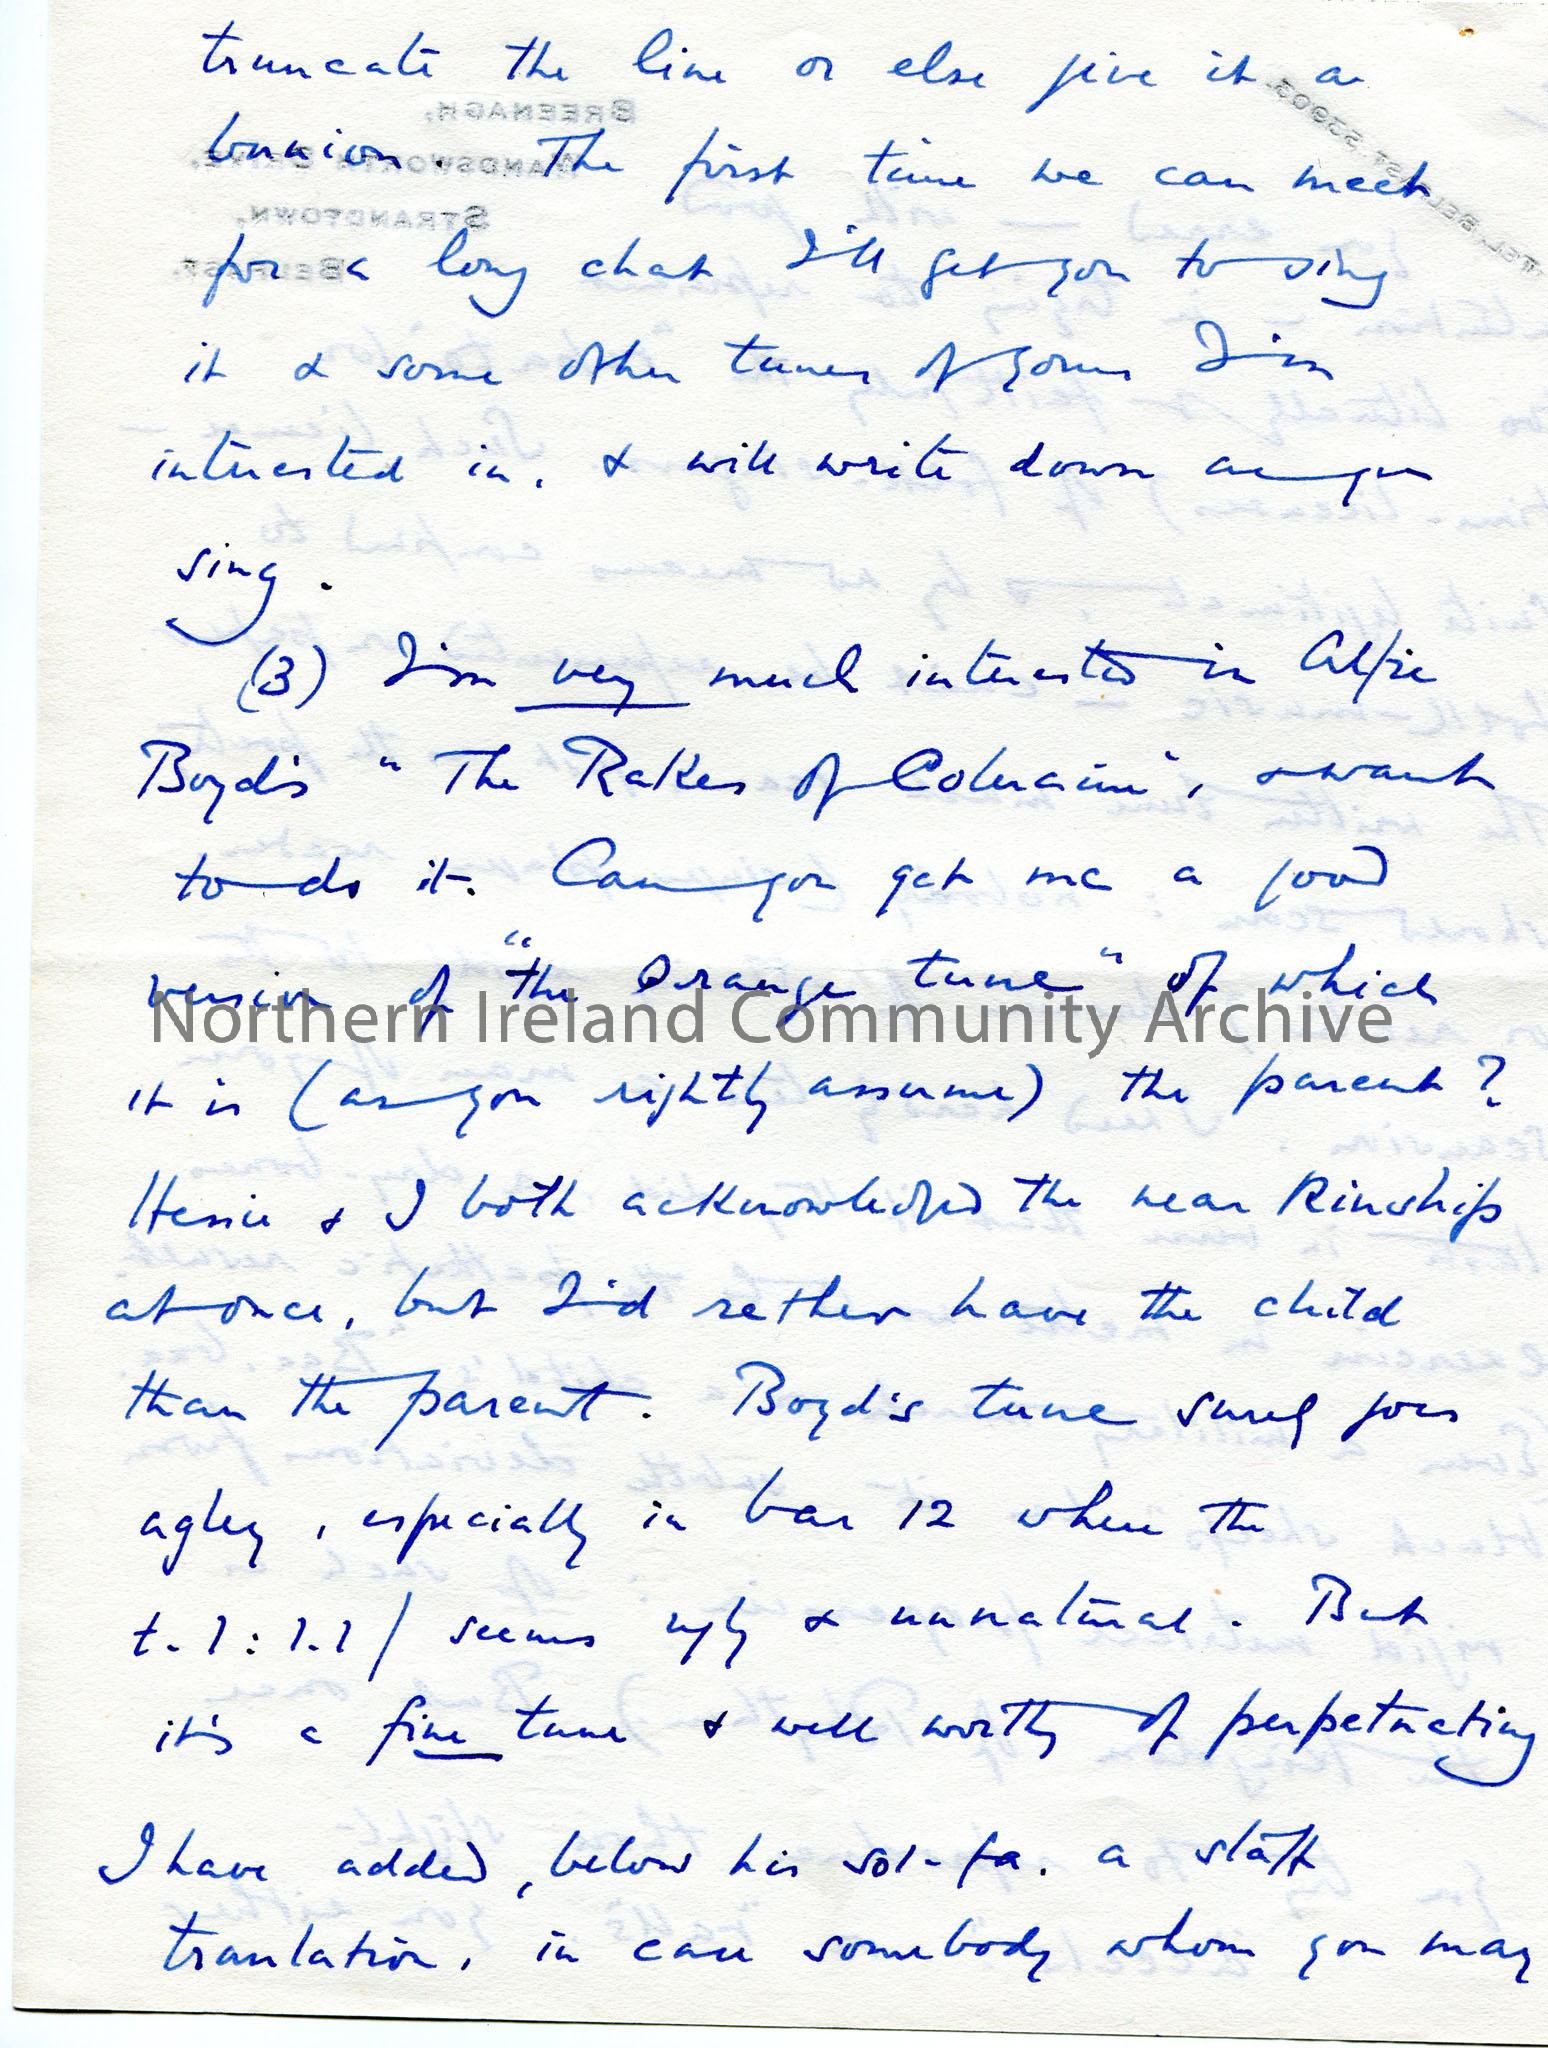 truncate the line or else give it a
bunion. The first time we can meet
for a long chat I'll get you to sing
it & some other tunes of yours I'm
interested in, & will write down as you
sing.
(3) I'm very much interested in Alfie
Boyd's "The Rakes of Coleraine", & want
to do it. Can you get me a good
version of "the Orange tune" of which
Northern Ireland Community Archive
it is (as you rightly assume) the parent?
Hessie & I both acknowledged the near kinship
at once, but I'd rather have the child
than the parent. Boyd's tune surely goes
agley, especially in bar 12 where the
t. l : l. l / seems ugly & unnatural. But
it's a fine tune & well worthy of perpetuating
I have added, below his sol-fa, a staff
translation, in case somebody whom you may
BREENAGH,
WANDSWORTH DRIVE,
STRANDTOWN,
BELFAST.